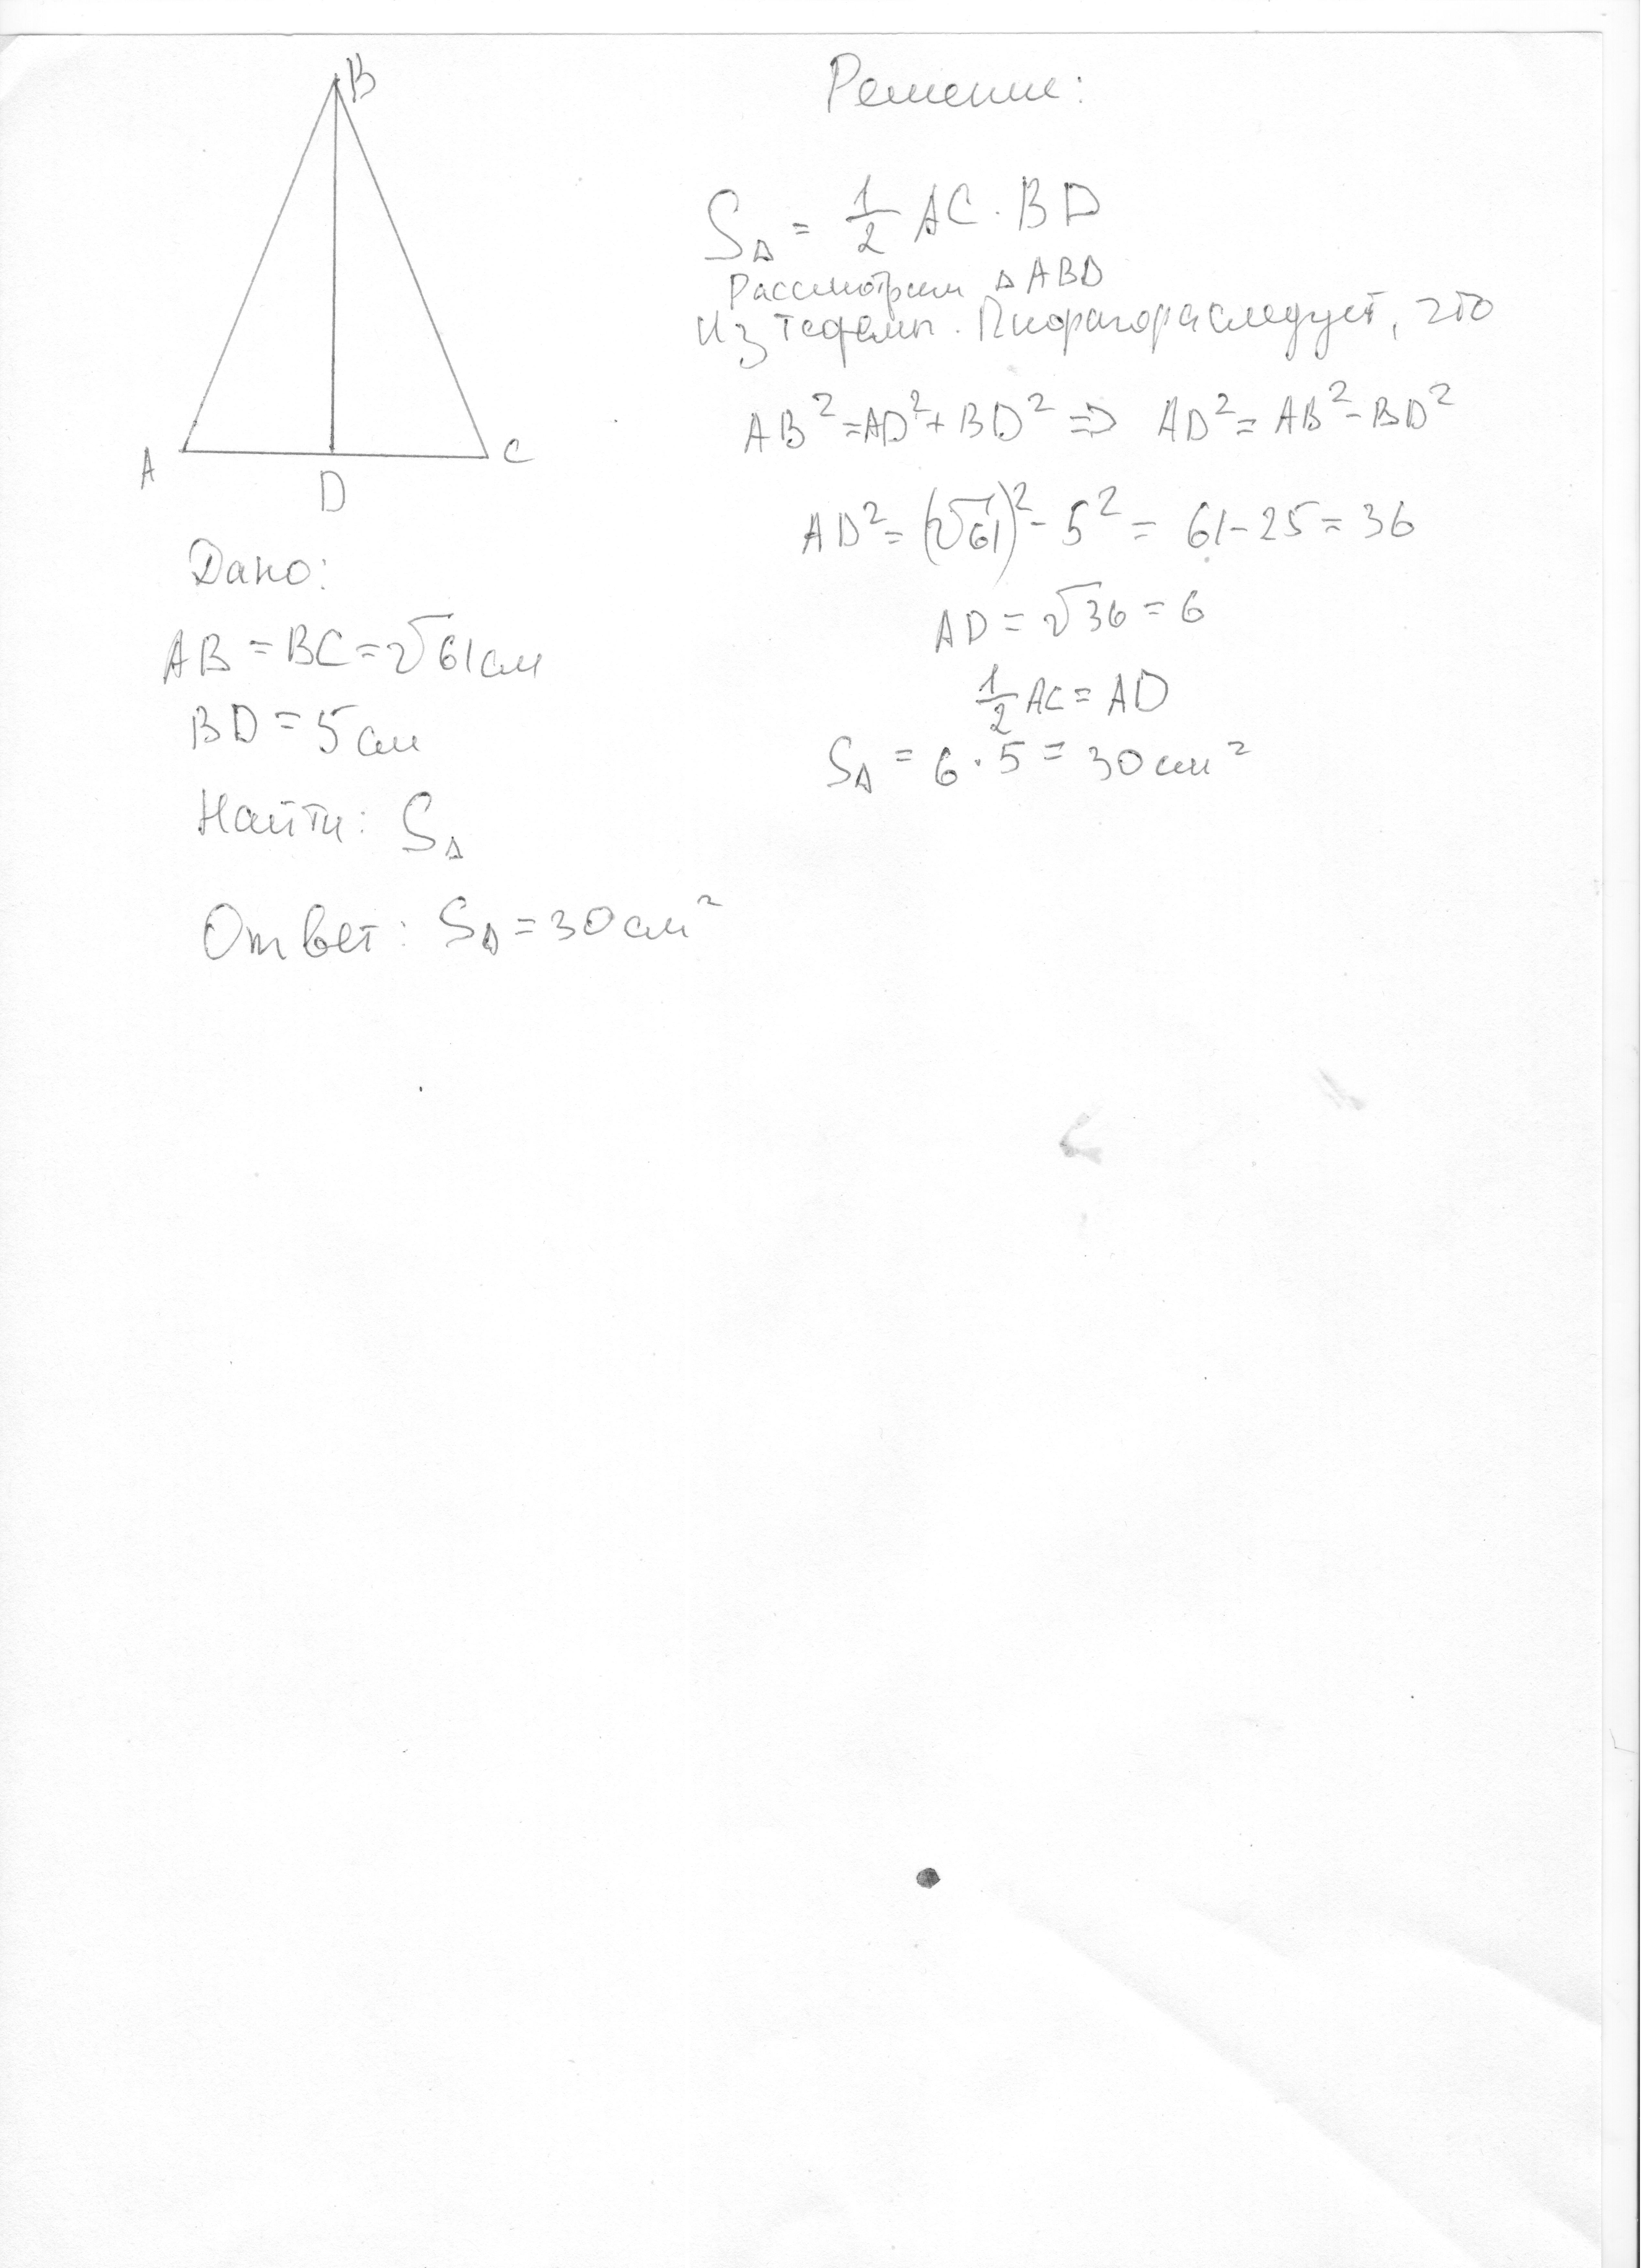 B
A
D
C
Дано:
AB = BC = √61 см
BD = 5 см
Найти: S△
Ответ: S△ = 30 см²
Решение:
S△ = 1/2 AC · BD
Рассмотрим △ ABD
Из теоремы Пифагора следует, что
AB² = AD² + BD² ⇒ AD² = AB² - BD²
AD² = (√61)² - 5² = 61 - 25 = 36
AD = √36 = 6
1/2 AC = AD
S△ = 6 · 5 = 30 см²